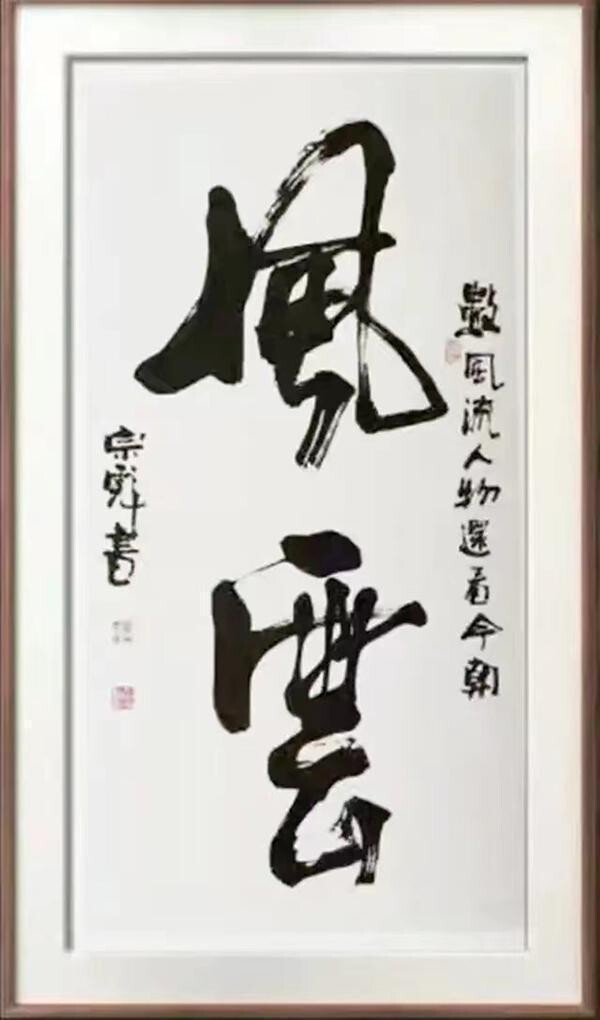 數風流人物還看今朝
風雲
宗書